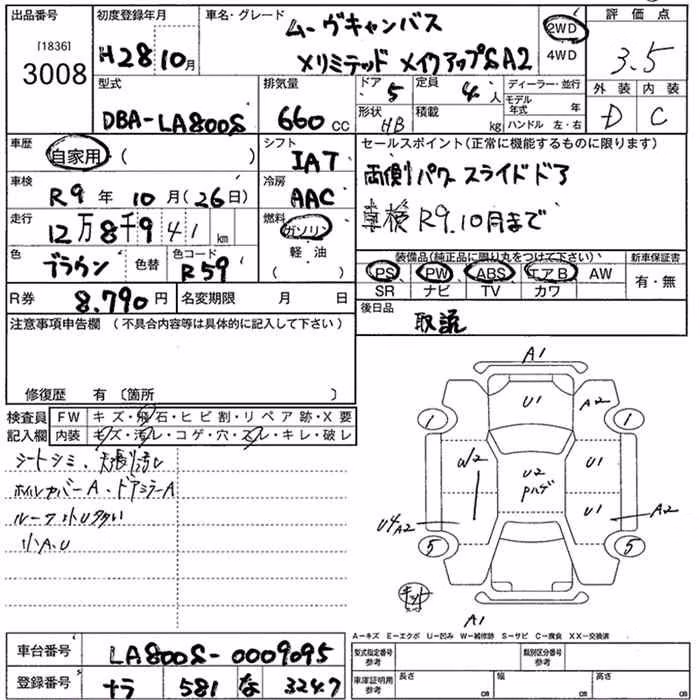 出品番号
[1836]
3008
初度登録年月
H28 10月
車名・グレード
ムーヴキャンバス
Xリミテッド メイクアップSA2
2WD
4WD
評価点
3.5
外装 内装
D C
型式
DBA-LA800S
排気量
660 CC
ドア 5
定員 4人
形状 HB
積載 kg
ディーラー・並行
モデル年式 年
ハンドル 左・右
車歴
自家用・( )
シフト
IAT
車検
R9年10月(26日)
冷房
AAC
走行
12万8千941km
燃料
ガソリン
軽・油
( )
色
ブラウン
色替
色コード
R59
R券 8,790円
名変期限 月 日
セールスポイント(正常に機能するものに限ります)
両側パワースライドドア
車検R9.10月まで
装備品(純正品に限り丸をつけて下さい)
PS PW ABS エアB AW
SR ナビ TV カワ
新車保証書
有・無
後日品
取説
注意事項申告欄(不具合内容等は具体的に記入して下さい)
修復歴 有〔箇所 〕
検査員記入欄
FW キズ・飛石・ヒビ割・リペア跡・X要
内装 キズ・汚レ・コゲ・穴・スレ・キレ・破レ
シートシミ、天張汚レ
ホイルカバーA・ドアミラーA
ルーフ小Uタタい
小A.U
A1
U1
A2
1
1
W2
U2
Pハゲ
U1
U1
A2
U4
A2
5
5
キット
A1
A-キズ E-エクボ U-凹み W-補修跡 S-サビ C-腐食 XX-交換済
車台番号 LA800S-0009095
登録番号 ナラ 581 な 3247
型式指定番号
参考
類別区分番号
参考
車庫証明用
参考
長さ cm
幅 cm
高さ cm